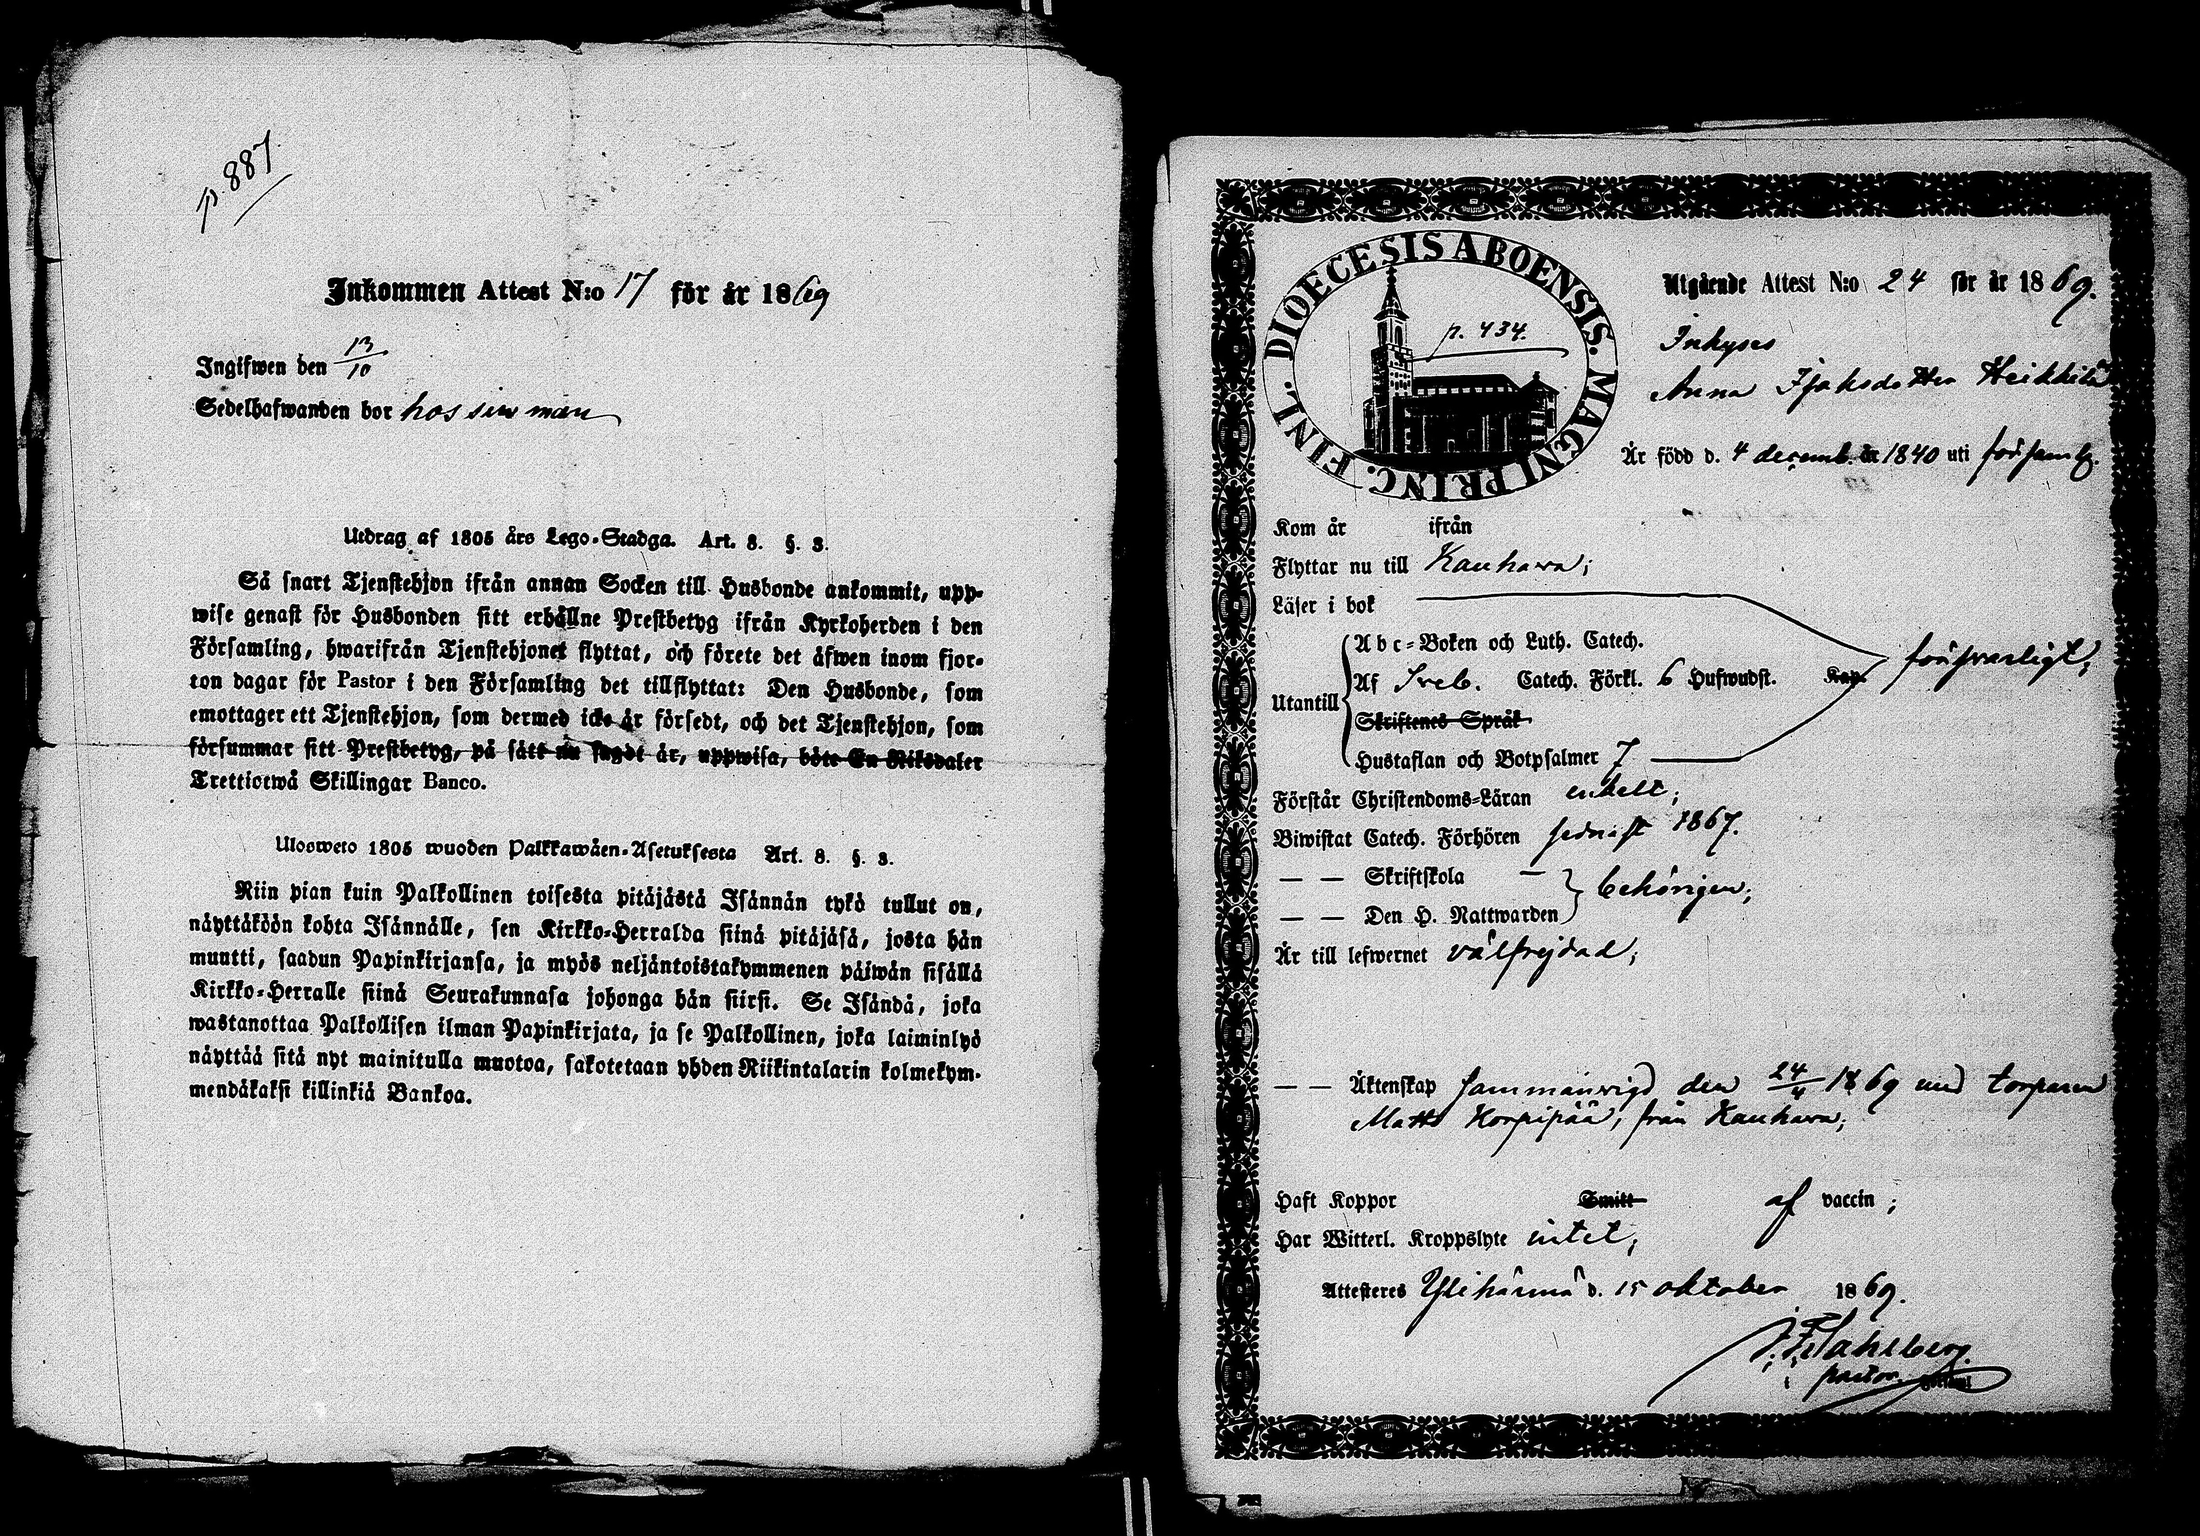 p. 887.
Inkommen Attest N:o 17 för år 1869
Ingifwen den 13/10
Sedelhafwanden bor hos sin man
Utdrag af 1805 års Lego-Stadga. Art. 8. §. 3.
Så snart Tjenstehjon ifrån annan Socken till Husbonde ankommit, upp-
wise genast för Husbonden sitt erhållne Prestbetyg ifrån Kyrkoherden i den
Församling, hwarifrån Tjenstehjonet flyttat, och förete det äfwen inom fjor-
ton dagar för Pastor i den Församling det tillflyttat: Den Husbonde, som
emottager ett Tjenstehjon, som dermed icke är försedt, och det Tjenstehjon, som
försummar sitt Prestbetyg, på sätt nu sagdt är, uppwisa, böte En Riksdaler
Trettiotwå Skillingar Banco.
Ulosweto 1805 wuoden Palkkawäen-Asetuksesta Art. 8. §. 3.
Niin pian kuin Palkollinen toisesta pitäjästä Isännän tykö tullut on,
näyttäköön kohta Isännälle, sen Kirkko-Herralda siinä pitäjäsä, josta hän
muutti, saadun Papinkirjansa, ja myös neljäntoistakymmenen päiwän sisällä
Kirkko-Herralle siinä Seurakunnasa johonga hän siirsi. Se Isändä, joka
wastanottaa Palkollisen ilman Papinkirjata, ja se Palkollinen, joka laiminlyö
näyttää sitä nyt mainitulla muotoa, sakotetaan yhden Riikintalarin kolmekym-
mendäkaksi killinkiä Bankoa.
DIOECESIS ABOENSIS. MAGNI PRINC. FINL.
p. 434.
Utgående Attest N:o 24 för år 1869.
Inhyses
Anna Isaksdotter Heikkilä
Är född d. 4 decemb. år 1840 uti församlg.
Kom år ifrån
Flyttar nu till Kauhava;
Läser i bok
Abc-Boken och Luth. Catech.
Utantill Af Sveb. Catech. Förkl. 6 Hufwudst. Kap. försvarligt;
Skriftenes Språk
Hustaflan och Botpsalmer 7
Förstår Christendoms-Läran enkelt;
Biwistat Catech. Förhören sednast 1867.
— — Skriftskola —
behörigen;
— — Den H. Nattwarden
Är till lefwernet välfrejdad;
— — Äktenskap sammanvigd den 24/4 1869 med torparen
Matts Korpipää, från Kauhava;
Haft Koppor Smitt af vaccin;
Har Witterl. Kroppslyte intet;
Attesteres Ylihärmä d. 15 oktober 1869.
pastor.